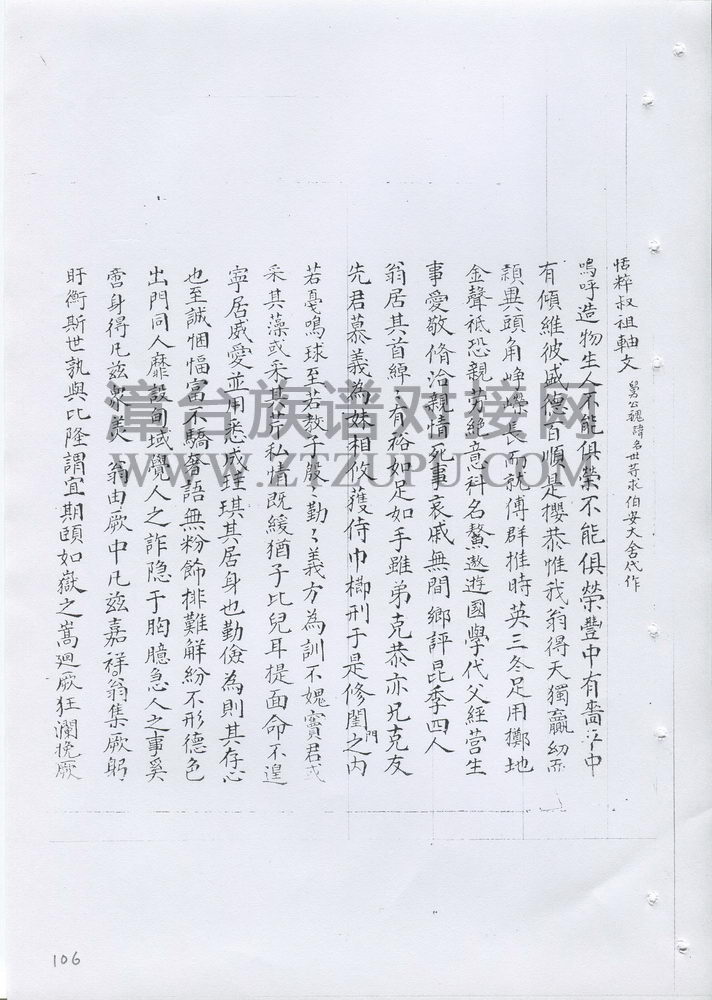 恬粹叔祖軸文 舅公魏諱名世等求伯安大舍代作
嗚呼造物生人不能俱榮不能俱榮豐中有嗇平中
有傾維彼盛德百順是攖恭惟我翁得天獨贏幼而
頴異頭角崢嶸長而就傅群推時英三冬足用擲地
金聲祗恐親勞絕意科名鰲遊國學代父經营生
事愛敬脩洽親情死事哀戚無間鄉評昆季四人
翁居其首綽々有裕如足如手雖弟克恭亦兄克友
先君慕義為妹相攸獲侍巾櫛刑于是修閨門之内
若戞鳴球至若教子嚴々勤々義方為訓不媿竇君或
采其藻或采其芹私情既緩猶子比兒耳提面命不遑
寕居威愛並用悉成珪琪其居身也勤儉為則其存心
也至誠悃愊富不驕奢語無粉飾排難解紛不形德色
出門同人靡設畛域覺人之詐隐于胸臆急人之事奚
啻身得凡兹衆美翁由厥中凡兹嘉祥翁集厥躬
盱衡斯世孰與比隆謂宜期頤如嶽之嵩廻厥狂瀾挽厥
漳台族谱对接网
WWW.ZTZUPU.COM
106